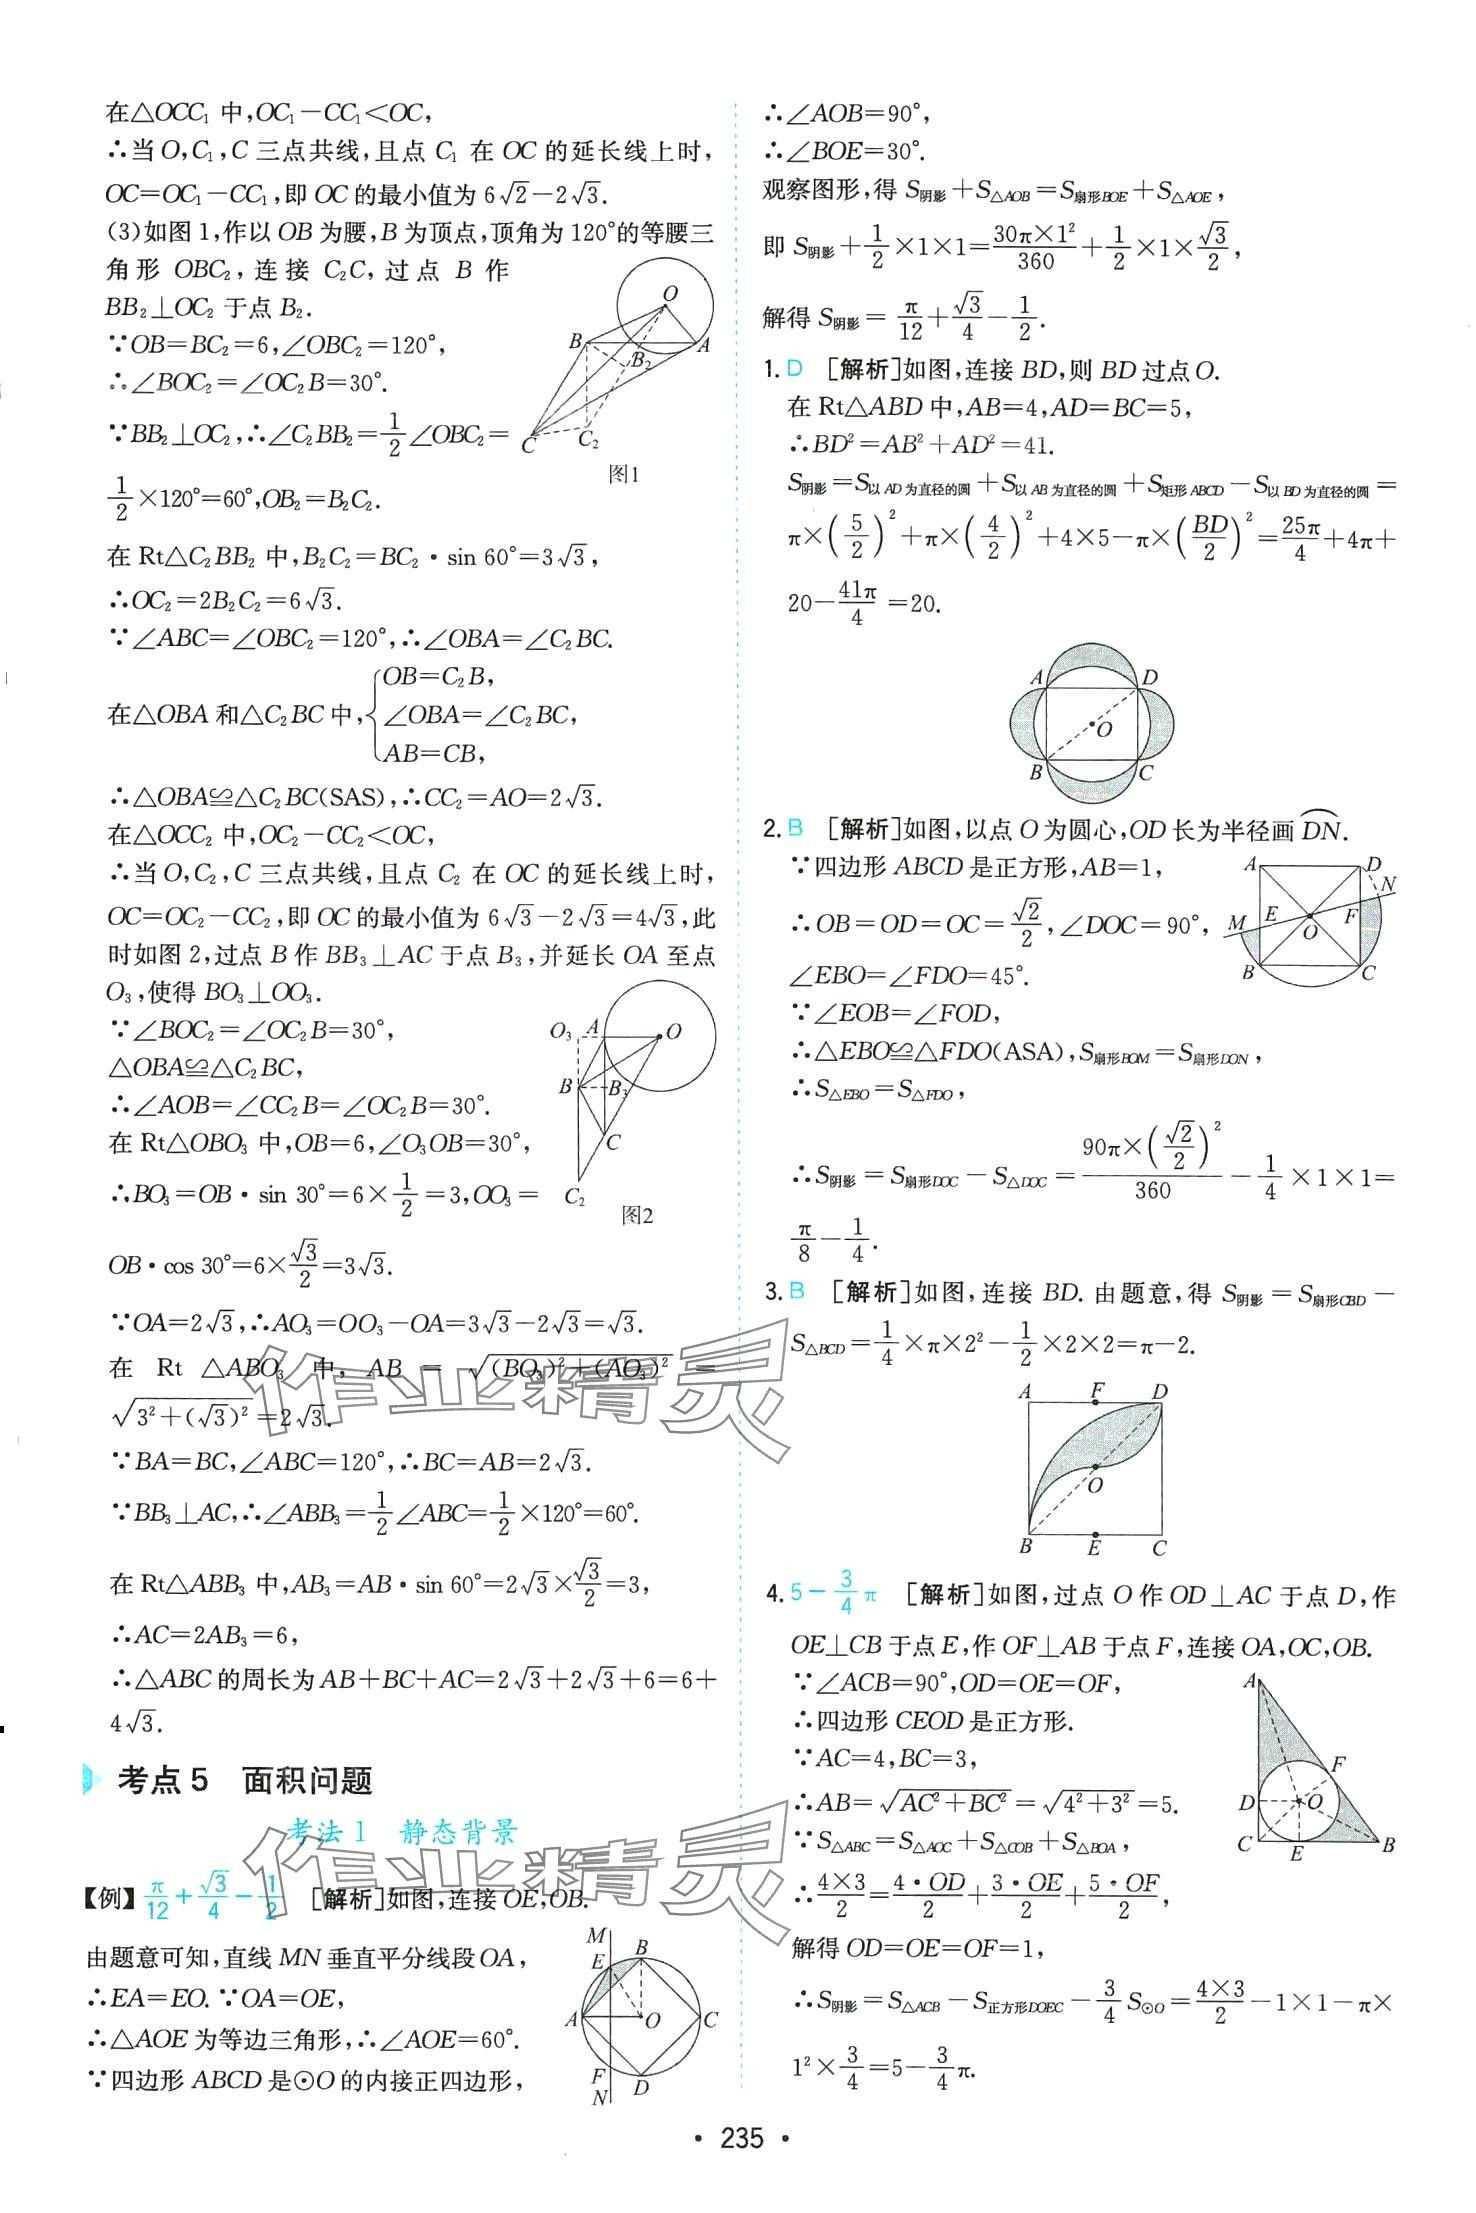 在△OCC₁中,OC₁－CC₁＜OC,
∴当O,C₁,C三点共线,且点C₁在OC的延长线上时,
OC=OC₁－CC₁,即OC的最小值为6√2－2√3.
(3)如图1,作以OB为腰,B为顶点,顶角为120°的等腰三
角形OBC₂,连接C₂C,过点B作
BB₂⊥OC₂于点B₂.
∵OB=BC₂=6,∠OBC₂=120°,
∴∠BOC₂=∠OC₂B=30°.
∵BB₂⊥OC₂,∴∠C₂BB₂=1/2∠OBC₂=
1/2×120°=60°,OB₂=B₂C₂.
O
B
B₂
A
C
C₂
图1
在Rt△C₂BB₂中,B₂C₂=BC₂·sin 60°=3√3,
∴OC₂=2B₂C₂=6√3.
∵∠ABC=∠OBC₂=120°,∴∠OBA=∠C₂BC.
在△OBA和△C₂BC中,{OB=C₂B,
∠OBA=∠C₂BC,
AB=CB,
∴△OBA≌△C₂BC(SAS),∴CC₂=AO=2√3.
在△OCC₂中,OC₂－CC₂＜OC,
∴当O,C₂,C三点共线,且点C₂在OC的延长线上时,
OC=OC₂－CC₂,即OC的最小值为6√3－2√3=4√3,此
时如图2,过点B作BB₃⊥AC于点B₃,并延长OA至点
O₃,使得BO₃⊥OO₃.
∵∠BOC₂=∠OC₂B=30°,
△OBA≌△C₂BC,
∴∠AOB=∠CC₂B=∠OC₂B=30°.
在Rt△OBO₃中,OB=6,∠O₃OB=30°,
∴BO₃=OB·sin 30°=6×1/2=3,OO₃=
O₃
A
O
B
B₃
C
C₂
图2
OB·cos 30°=6×√3/2=3√3.
∵OA=2√3,∴AO₃=OO₃－OA=3√3－2√3=√3.
在Rt△ABO₃中,AB=√((BO₃)²+(AO₃)²)=
√(3²+(√3)²)=2√3.
∵BA=BC,∠ABC=120°,∴BC=AB=2√3.
∵BB₃⊥AC,∴∠ABB₃=1/2∠ABC=1/2×120°=60°.
在Rt△ABB₃中,AB₃=AB·sin 60°=2√3×√3/2=3,
∴AC=2AB₃=6,
∴△ABC的周长为AB+BC+AC=2√3+2√3+6=6+
4√3.
考点5 面积问题
考法1 静态背景
【例】π/12+√3/4－1/2 [解析]如图,连接OE,OB.
由题意可知,直线MN垂直平分线段OA,
∴EA=EO.∵OA=OE,
∴△AOE为等边三角形,∴∠AOE=60°.
∵四边形ABCD是⊙O的内接正四边形,
M
E
B
A
O
C
F
D
N
∴∠AOB=90°,
∴∠BOE=30°.
观察图形,得S阴影+S△AOB=S扇形BOE+S△AOE,
即S阴影+1/2×1×1=30π×1²/360+1/2×1×√3/2,
解得S阴影=π/12+√3/4－1/2.
1. D [解析]如图,连接BD,则BD过点O.
在Rt△ABD中,AB=4,AD=BC=5,
∴BD²=AB²+AD²=41.
S阴影=S以AD为直径的圆+S以AB为直径的圆+S矩形ABCD－S以BD为直径的圆=
π×(5/2)²+π×(4/2)²+4×5－π×(BD/2)²=25π/4+4π+
20－41π/4=20.
A
D
O
B
C
2. B [解析]如图,以点O为圆心,OD长为半径画DN⌒.
∵四边形ABCD是正方形,AB=1,
∴OB=OD=OC=√2/2,∠DOC=90°,
∠EBO=∠FDO=45°.
∵∠EOB=∠FOD,
∴△EBO≌△FDO(ASA),S扇形BOM=S扇形DON,
∴S△EBO=S△FDO,
A
D
N
M
E
F
O
B
C
∴S阴影=S扇形DOC－S△DOC=90π×(√2/2)²/360－1/4×1×1=
π/8－1/4.
3. B [解析]如图,连接BD.由题意,得S阴影=S扇形CBD－
S△BCD=1/4×π×2²－1/2×2×2=π－2.
A
F
D
O
B
E
C
4. 5－3/4π [解析]如图,过点O作OD⊥AC于点D,作
OE⊥CB于点E,作OF⊥AB于点F,连接OA,OC,OB.
∵∠ACB=90°,OD=OE=OF,
∴四边形CEOD是正方形.
∵AC=4,BC=3,
∴AB=√(AC²+BC²)=√(4²+3²)=5.
∵S△ABC=S△AOC+S△COB+S△BOA,
∴4×3/2=4·OD/2+3·OE/2+5·OF/2,
A
F
D
O
C
E
B
解得OD=OE=OF=1,
∴S阴影=S△ACB－S正方形DOEC－3/4S⊙O=4×3/2－1×1－π×
1²×3/4=5－3/4π.
作业精灵
作业精灵
·235·